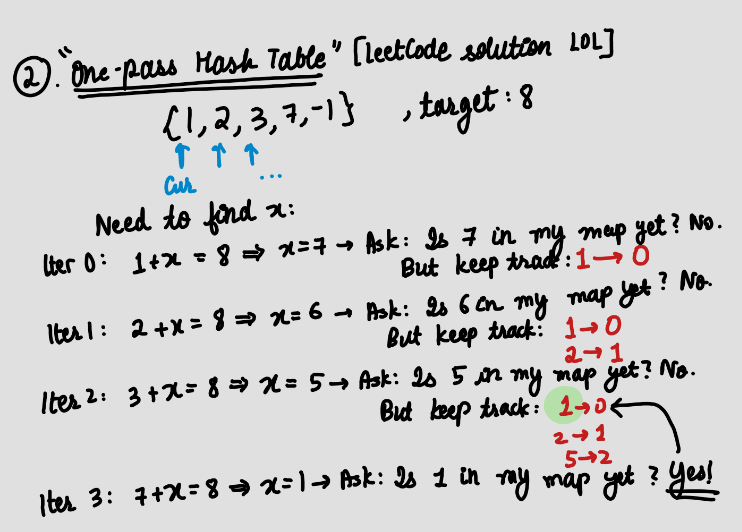 ②. "One-pass Hash Table" [leetCode solution LOL]
{1, 2, 3, 7, -1} , target: 8
↑ ↑ ↑
Cur ...
Need to find x:
Iter 0: 1+x = 8 ⇒ x=7 → Ask: Is 7 in my map yet? No.
But keep track: 1 → 0
Iter 1: 2+x = 8 ⇒ x=6 → Ask: Is 6 in my map yet? No.
But keep track: 1 → 0
2 → 1
Iter 2: 3+x = 8 ⇒ x = 5 → Ask: Is 5 in my map yet? No.
But keep track: 1 → 0
2 → 1
5 → 2
Iter 3: 7+x = 8 ⇒ x=1 → Ask: Is 1 in my map yet? Yes!